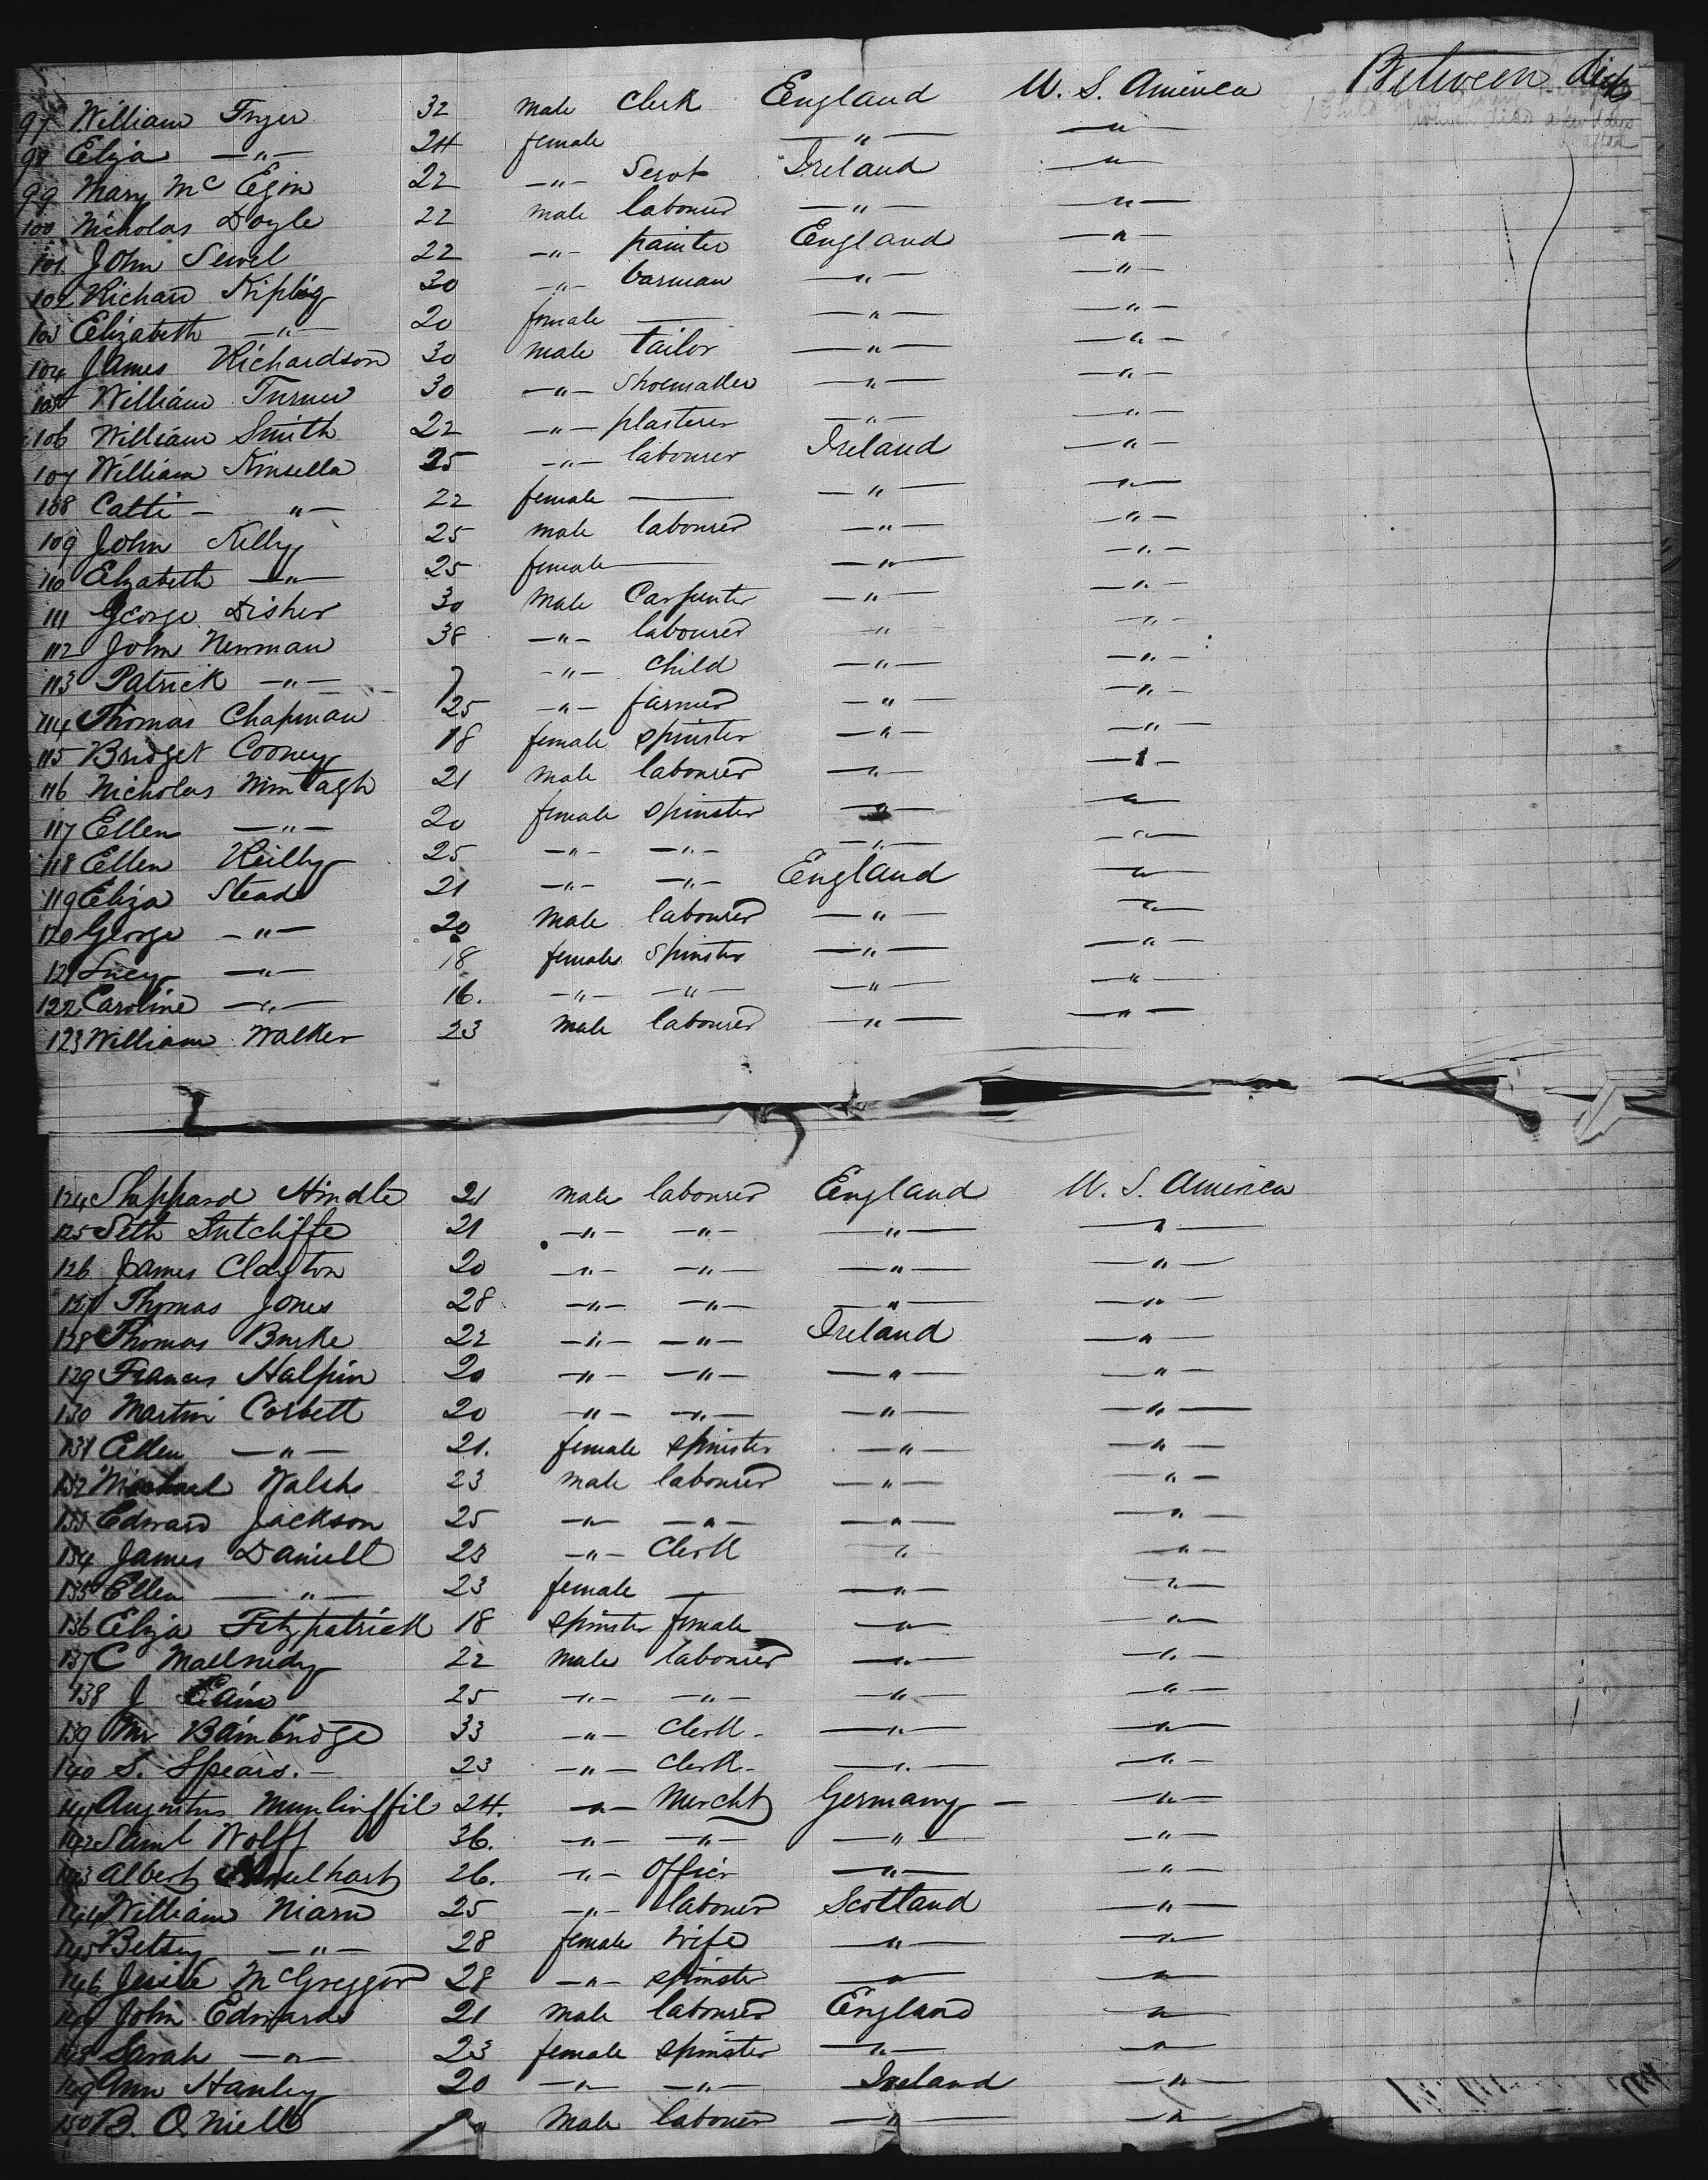 97 William Fryer 32 male Clerk England U. S. America Between decks
98 Eliza —"— 24 female —"— —"—
99 Mary McEgin 22 —"— Servt Ireland —"—
100 Nicholas Doyle 22 male labourer —"— —"—
101 John Sewel 22 —"— painter England —"—
102 Richard Kipling 30 —"— barman —"— —"—
103 Elizabeth —"— 20 female — —"— —"—
104 James Richardson 30 male tailor —"— —"—
105 William Turner 30 —"— Shoemaker —"— —"—
106 William Smith 22 —"— plasterer —"— —"—
107 William Kinsella 25 —"— labourer Ireland —"—
108 Catti — "— 22 female — —"— —"—
109 John Kelly 25 male labourer —"— —"—
110 Elizabeth —"— 25 female — —"— —"—
111 George Disher 30 male Carpenter —"— —"—
112 John Newman 38 —"— labourer —"— —"—
113 Patrick —"— 7 —"— Child —"— —"—
114 Thomas Chapman 25 —"— farmer —"— —"—
115 Bridget Cooney 18 female spinster —"— —"—
116 Nicholas 21 male labourer —"— —"—
117 Ellen —"— 20 female spinster —"— —"—
118 Ellen Reilly 25 —"— —"— —"— —"—
119 Eliza Stead 21 —"— —"— England —"—
120 George —"— 20 male labourer —"— —"—
121 Lucy —"— 18 female Spinster —"— —"—
122 Caroline —"— 16. —"— —"— —"— —"—
123 William Walker 23 male labourer —"— —"—
124 Shappard Hindle 21 male labourer England U. S. America
125 Seth Sutcliffe 21 —"— —"— —"— —"—
126 James Clayton 20 —"— —"— —"— —"—
127 Thomas Jones 28 —"— —"— —"— —"—
128 Thomas Burke 22 —"— —"— Ireland —"—
129 Frances Halpin 20 —"— —"— —"— —"—
130 Martin Corbett 20 —"— —"— —"— —"—
131 Ellen —"— 21. female spinster —"— —"—
132 Michael Walsh 23 male labourer —"— —"—
133 Edward Jackson 25 —"— —"— —"— —"—
134 James Daniell 23 —"— Clerk " —"—
135 Ellen —"— 23 female — —"— —"—
136 Eliza Fitzpatrick 18 spinster female —"— —"—
137 C 22 male labourer —"— —"—
138 J Cain 25 —"— —"— —"— —"—
139 Mr Bambridge 33 —"— Clerk — —"— —"—
140 S. Spears. — 23 —"— Clerk — —"— —"—
141 Augustus 24. —"— Mercht Germany — —"—
142 Saml Wolff 36. —"— —"— —"— —"—
143 Albert 26. —"— Officer —"— —"—
144 William Niarn 25 —"— labourer Scotland —"—
145 Betsey —"— 28 female Wife —"— —"—
146 Jessie McGreggor 28 —"— spinster —"— —"—
147 John Edwards 21 male labourer England —"—
148 Sarah —"— 23 female spinster —"— —"—
149 Ann Hanley 20 —"— —"— Ireland —"—
150 B. O'Niell male labourer —"— —"—